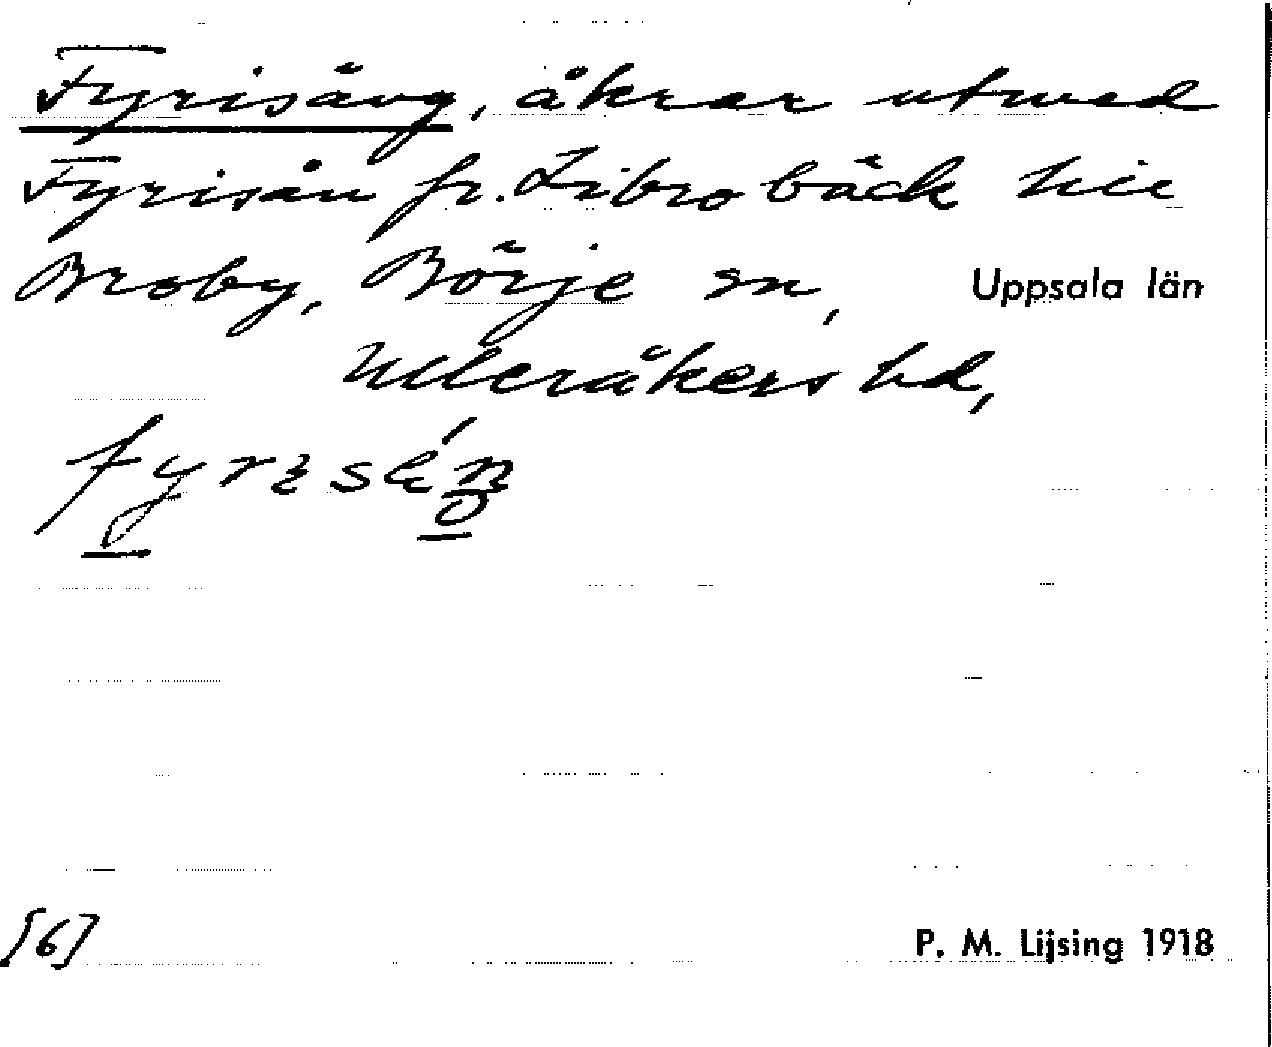 Fyrisäng, åkrar utmed
Fyrisån fr. Librobäck till
Broby, Börje sn, Uppsala län
Ulleråkers hd,
[6]
P. M. Lijsing 1918